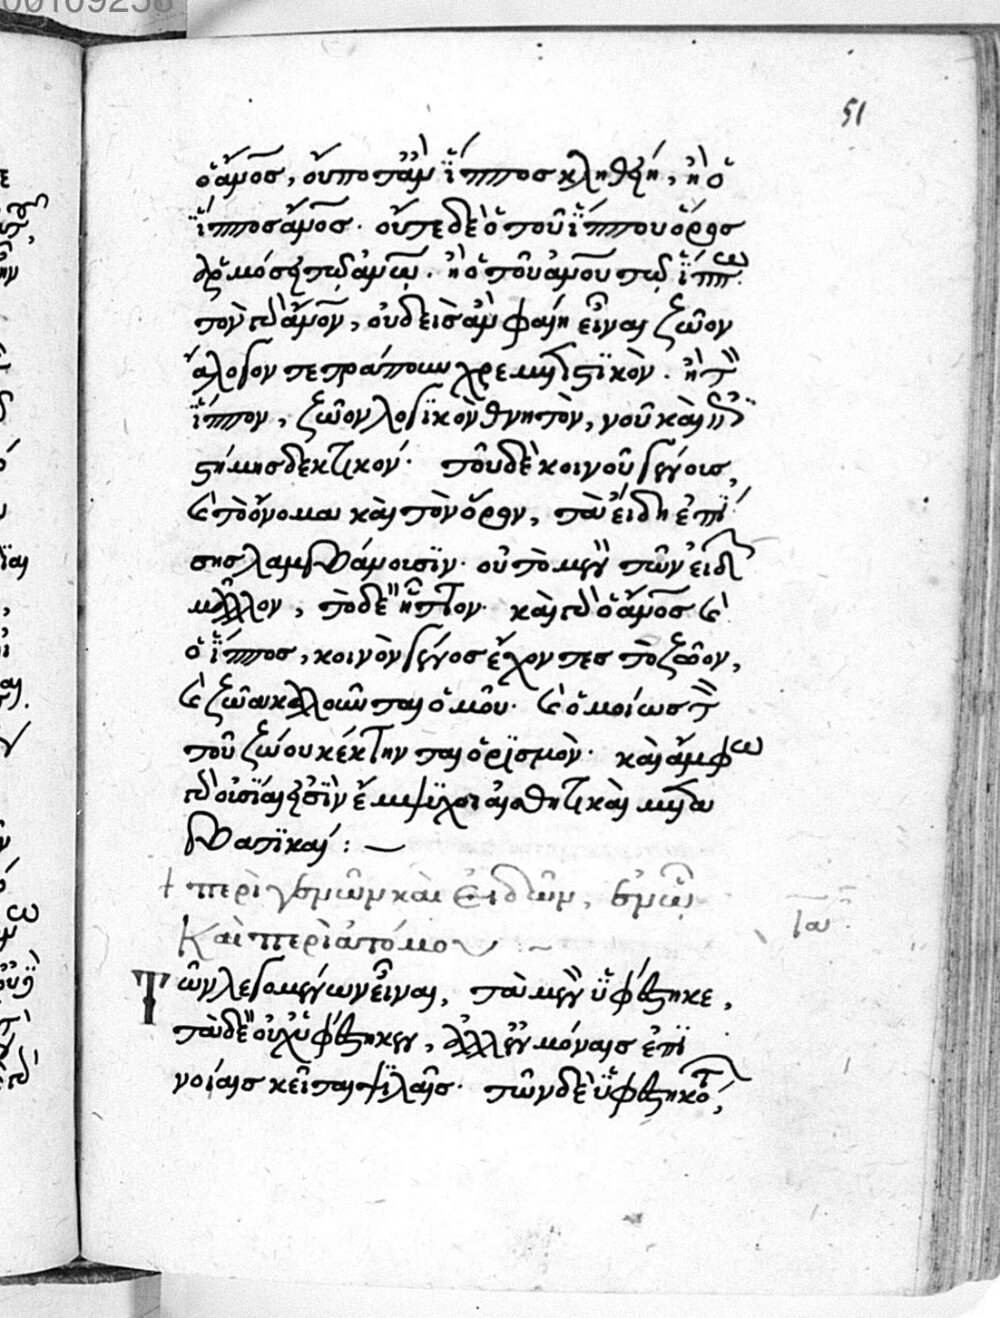 00109258
51
ὁ ἄνος, οὔποτ' ἂν ἵππος κληθείη, ἢ ὁ
ἵππος ἄνος. οὔτε δὲ ὁ τοῦ ἵππου ὅρος
ἁρμόσει τῶ ἀνω. ἢ ὁ τοῦ ἀνου τῶ ἵππω.
τὸν γὰρ ἄνον, οὐδεὶς ἂν φαίη εἶναι ζῶον
ἄλογον τετράπουν χρεμετιστικὸν. ἢ τὸν
ἵππον, ζῶον λογικὸν θνητὸν, νοῦ καὶ ἐπι
στήμης δεκτικόν. τοῦ δὲ κοινοῦ γένους,
καὶ τὸ ὄνομα καὶ τὸν ὅρον, τὰ εἴδη ἐπί
σης λαμβάνουσιν. οὐ τὸ μὲν τῶν εἰδῶν
μᾶλλον, τὸ δὲ ἧττον. καὶ γὰρ ὁ ἄνος καὶ
ὁ ἵππος, κοινὸν γένος ἔχοντες τὸ ζῶον,
καὶ ζῶα καλοῦνται ὁμοῦ. καὶ ὁμοίως τὸν
τοῦ ζώου κέκτηνται ὁρισμὸν. καὶ ἄμφω
γὰρ οὐσίαι εἰσὶν ἔμψυχοι αἰσθητικαὶ μετα
βατικαί:
+ περὶ γενῶν καὶ εἰδῶν,
Καὶ περὶ ἀτόμου:~
Τῶν λεγομένων εἶναι, τὰ μὲν ὑφέστηκε,
τὰ δὲ οὐχ ὑφέστηκεν, ἀλλ' ἐν μόναις ἐπι
νοίαις κεῖται ψιλαῖς. τῶν δὲ ὑφεστηκότων,